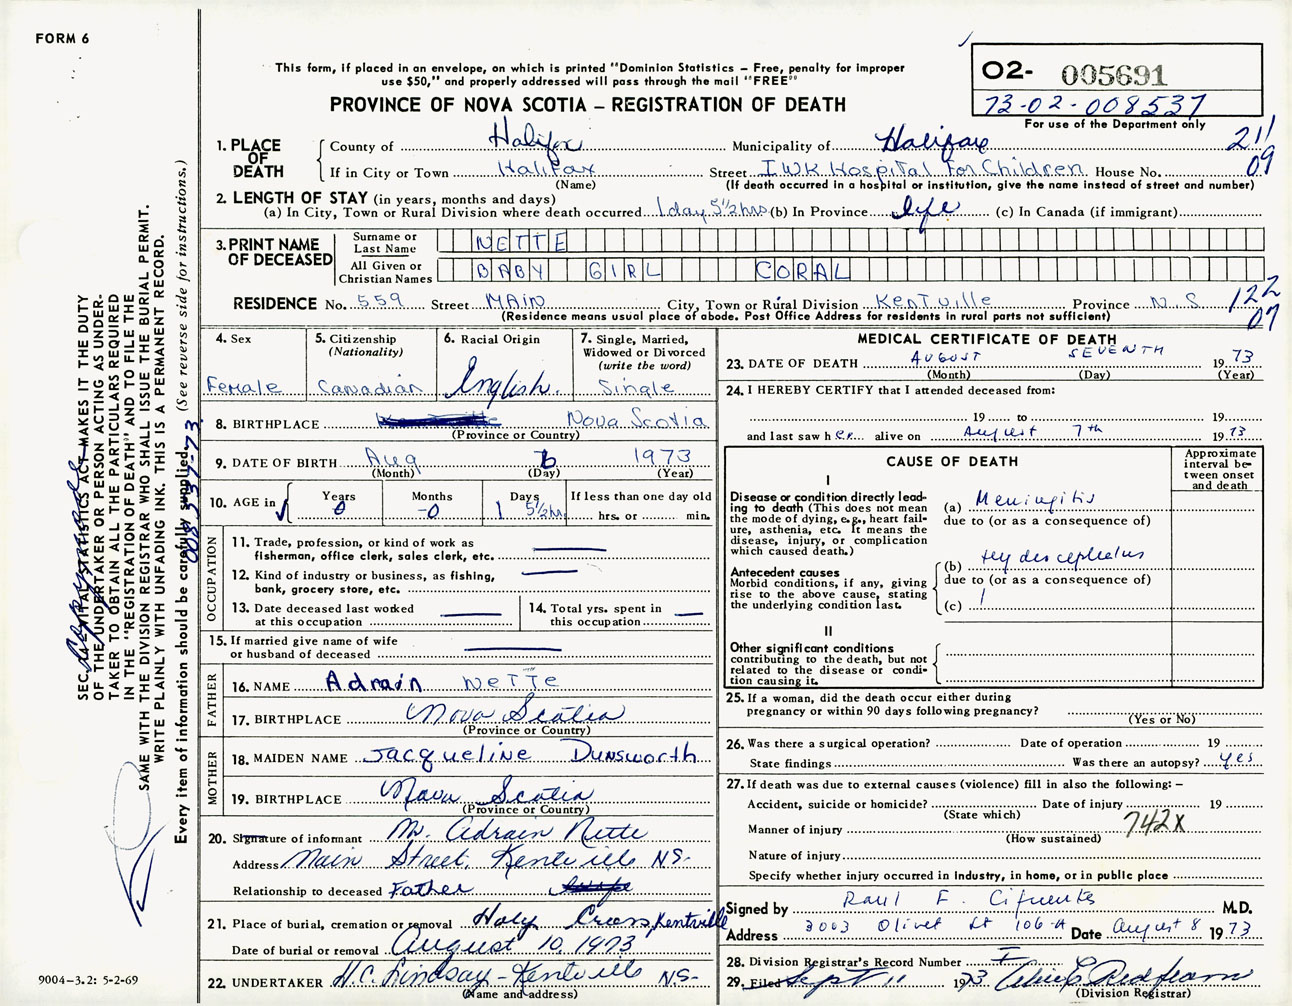 FORM 6
This form, if placed in an envelope, on which is printed "Dominion Statistics – Free, penalty for improper
use $50," and properly addressed will pass through the mail "FREE"
PROVINCE OF NOVA SCOTIA – REGISTRATION OF DEATH
02- 005691
73-02-008537
For use of the Department only
1. PLACE OF DEATH County of Halifax Municipality of Halifax 211
If in City or Town Halifax Street IWK Hospital for Children House No. 09
(Name) (If death occurred in a hospital or institution, give the name instead of street and number)
2. LENGTH OF STAY (in years, months and days)
(a) In City, Town or Rural Division where death occurred 1 day 5½ hrs (b) In Province life (c) In Canada (if immigrant)
3. PRINT NAME OF DECEASED
Surname or Last Name NETTE
All Given or Christian Names BABY GIRL CORAL
RESIDENCE No. 559 Street MAIN City, Town or Rural Division Kentville Province N.S. 122
(Residence means usual place of abode. Post Office Address for residents in rural parts not sufficient) 07
4. Sex Female
5. Citizenship (Nationality) Canadian
6. Racial Origin English.
7. Single, Married, Widowed or Divorced (write the word) Single
8. BIRTHPLACE Nova Scotia
(Province or Country)
9. DATE OF BIRTH Aug 6 1973
(Month) (Day) (Year)
10. AGE in Years 0 Months 0 Days 1 5½ hrs If less than one day old
hrs. or min.
OCCUPATION
11. Trade, profession, or kind of work as
fisherman, office clerk, sales clerk, etc.
12. Kind of industry or business, as fishing,
bank, grocery store, etc.
13. Date deceased last worked
at this occupation
14. Total yrs. spent in
this occupation
15. If married give name of wife
or husband of deceased
FATHER
16. NAME Adrain NETTE
17. BIRTHPLACE Nova Scotia
(Province or Country)
MOTHER
18. MAIDEN NAME Jacqueline Dunsworth
19. BIRTHPLACE Nova Scotia
(Province or Country)
20. Signature of informant Mr. Adrain Nette
Address Main Street, Kentville N.S.
Relationship to deceased Father
21. Place of burial, cremation or removal Holy Cross, Kentville
Date of burial or removal August 10, 1973
22. UNDERTAKER H.C. Lindsay - Kentville N.S.
(Name and address)
MEDICAL CERTIFICATE OF DEATH
23. DATE OF DEATH AUGUST SEVENTH 19 73
(Month) (Day) (Year)
24. I HEREBY CERTIFY that I attended deceased from:
19 to 19
and last saw her alive on August 7th 19 73
CAUSE OF DEATH
Approximate
interval be-
tween onset
and death
I
Disease or condition directly lead-
ing to death (This does not mean
the mode of dying, e.g., heart fail-
ure, asthenia, etc. It means the
disease, injury, or complication
which caused death.)
(a) Meningitis
due to (or as a consequence of)
Antecedent causes
Morbid conditions, if any, giving
rise to the above cause, stating
the underlying condition last.
(b) Hydrocephalus
due to (or as a consequence of)
(c)
II
Other significant conditions
contributing to the death, but not
related to the disease or condi-
tion causing it.
25. If a woman, did the death occur either during
pregnancy or within 90 days following pregnancy?
(Yes or No)
26. Was there a surgical operation? Date of operation 19
State findings Was there an autopsy? yes
27. If death was due to external causes (violence) fill in also the following: –
Accident, suicide or homicide? Date of injury 19
(State which)
Manner of injury 742X
(How sustained)
Nature of injury
Specify whether injury occurred in industry, in home, or in public place
Signed by Raul F. Cifuentes M.D.
Address 3003 Olivet St 106-A Date August 8 1973
28. Division Registrar's Record Number
29. Filed Sept 11 1973
(Division Registrar)
SEC. VITAL STATISTICS ACT MAKES IT THE DUTY
OF THE UNDERTAKER OR PERSON ACTING AS UNDER-
TAKER TO OBTAIN ALL THE PARTICULARS REQUIRED
IN THE "REGISTRATION OF DEATH" AND TO FILE THE
SAME WITH THE DIVISION REGISTRAR WHO SHALL ISSUE THE BURIAL PERMIT.
WRITE PLAINLY WITH UNFADING INK. THIS IS A PERMANENT RECORD.
Every item of information should be carefully supplied. (See reverse side for instructions.)
008537-73
9004-3.2: 5-2-69